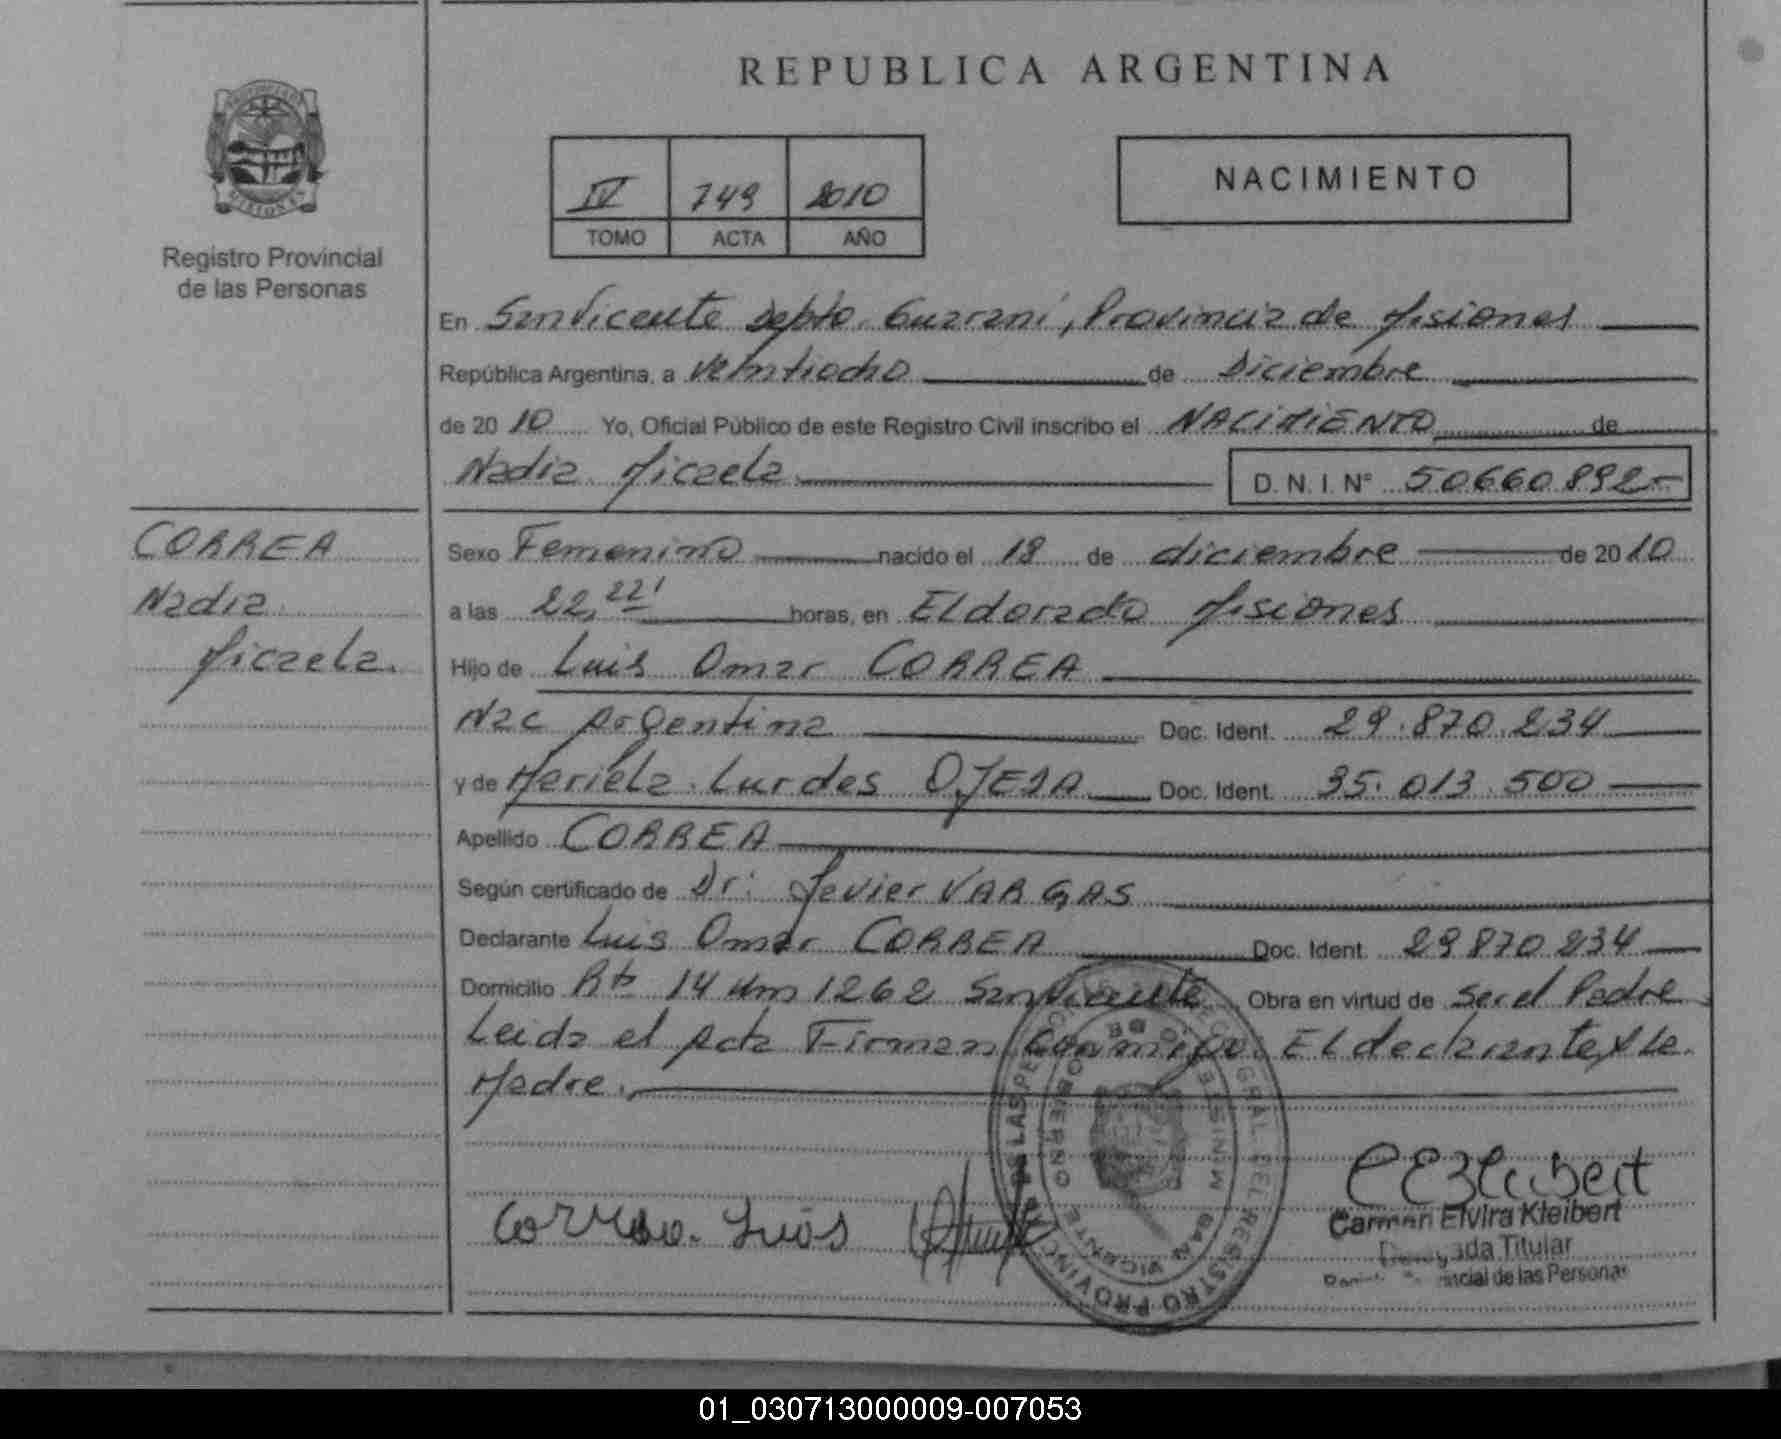 REPUBLICA ARGENTINA
PROVINCIA DE MISIONES
Registro Provincial
de las Personas
IV 749 2010
TOMO ACTA AÑO
NACIMIENTO
En San Vicente Depto. Guaraní, Provincia de Misiones
República Argentina, a Veintiocho de Diciembre
de 2010 Yo, Oficial Público de este Registro Civil inscribo el NACIMIENTO de
Nadia Micaela D. N. I. N° 50660892-
CORREA
Nadia
Micaela.
Sexo Femenino nacido el 18 de diciembre de 2010
a las 22,22' horas, en Eldorado Misiones
Hijo de Luis Omar CORREA
Nac Argentina Doc. Ident. 29.870.234
y de Mariela Lurdes OJEDA Doc. Ident. 35.013.500
Apellido CORREA
Según certificado de Dr: Javier VARGAS
Declarante Luis Omar CORREA Doc. Ident. 29870234
Domicilio Rta 14 Km 1262 San Vicente Obra en virtud de ser el Padre
Leida el Acta Firman conmigo El declarante y la
Madre.
Correa. Luis
Carmen Elvira Kleibert
Titular
de las Personas
REGISTRO PROVINCIAL DE LAS PERSONAS
SAN VICENTE
01_030713000009-007053